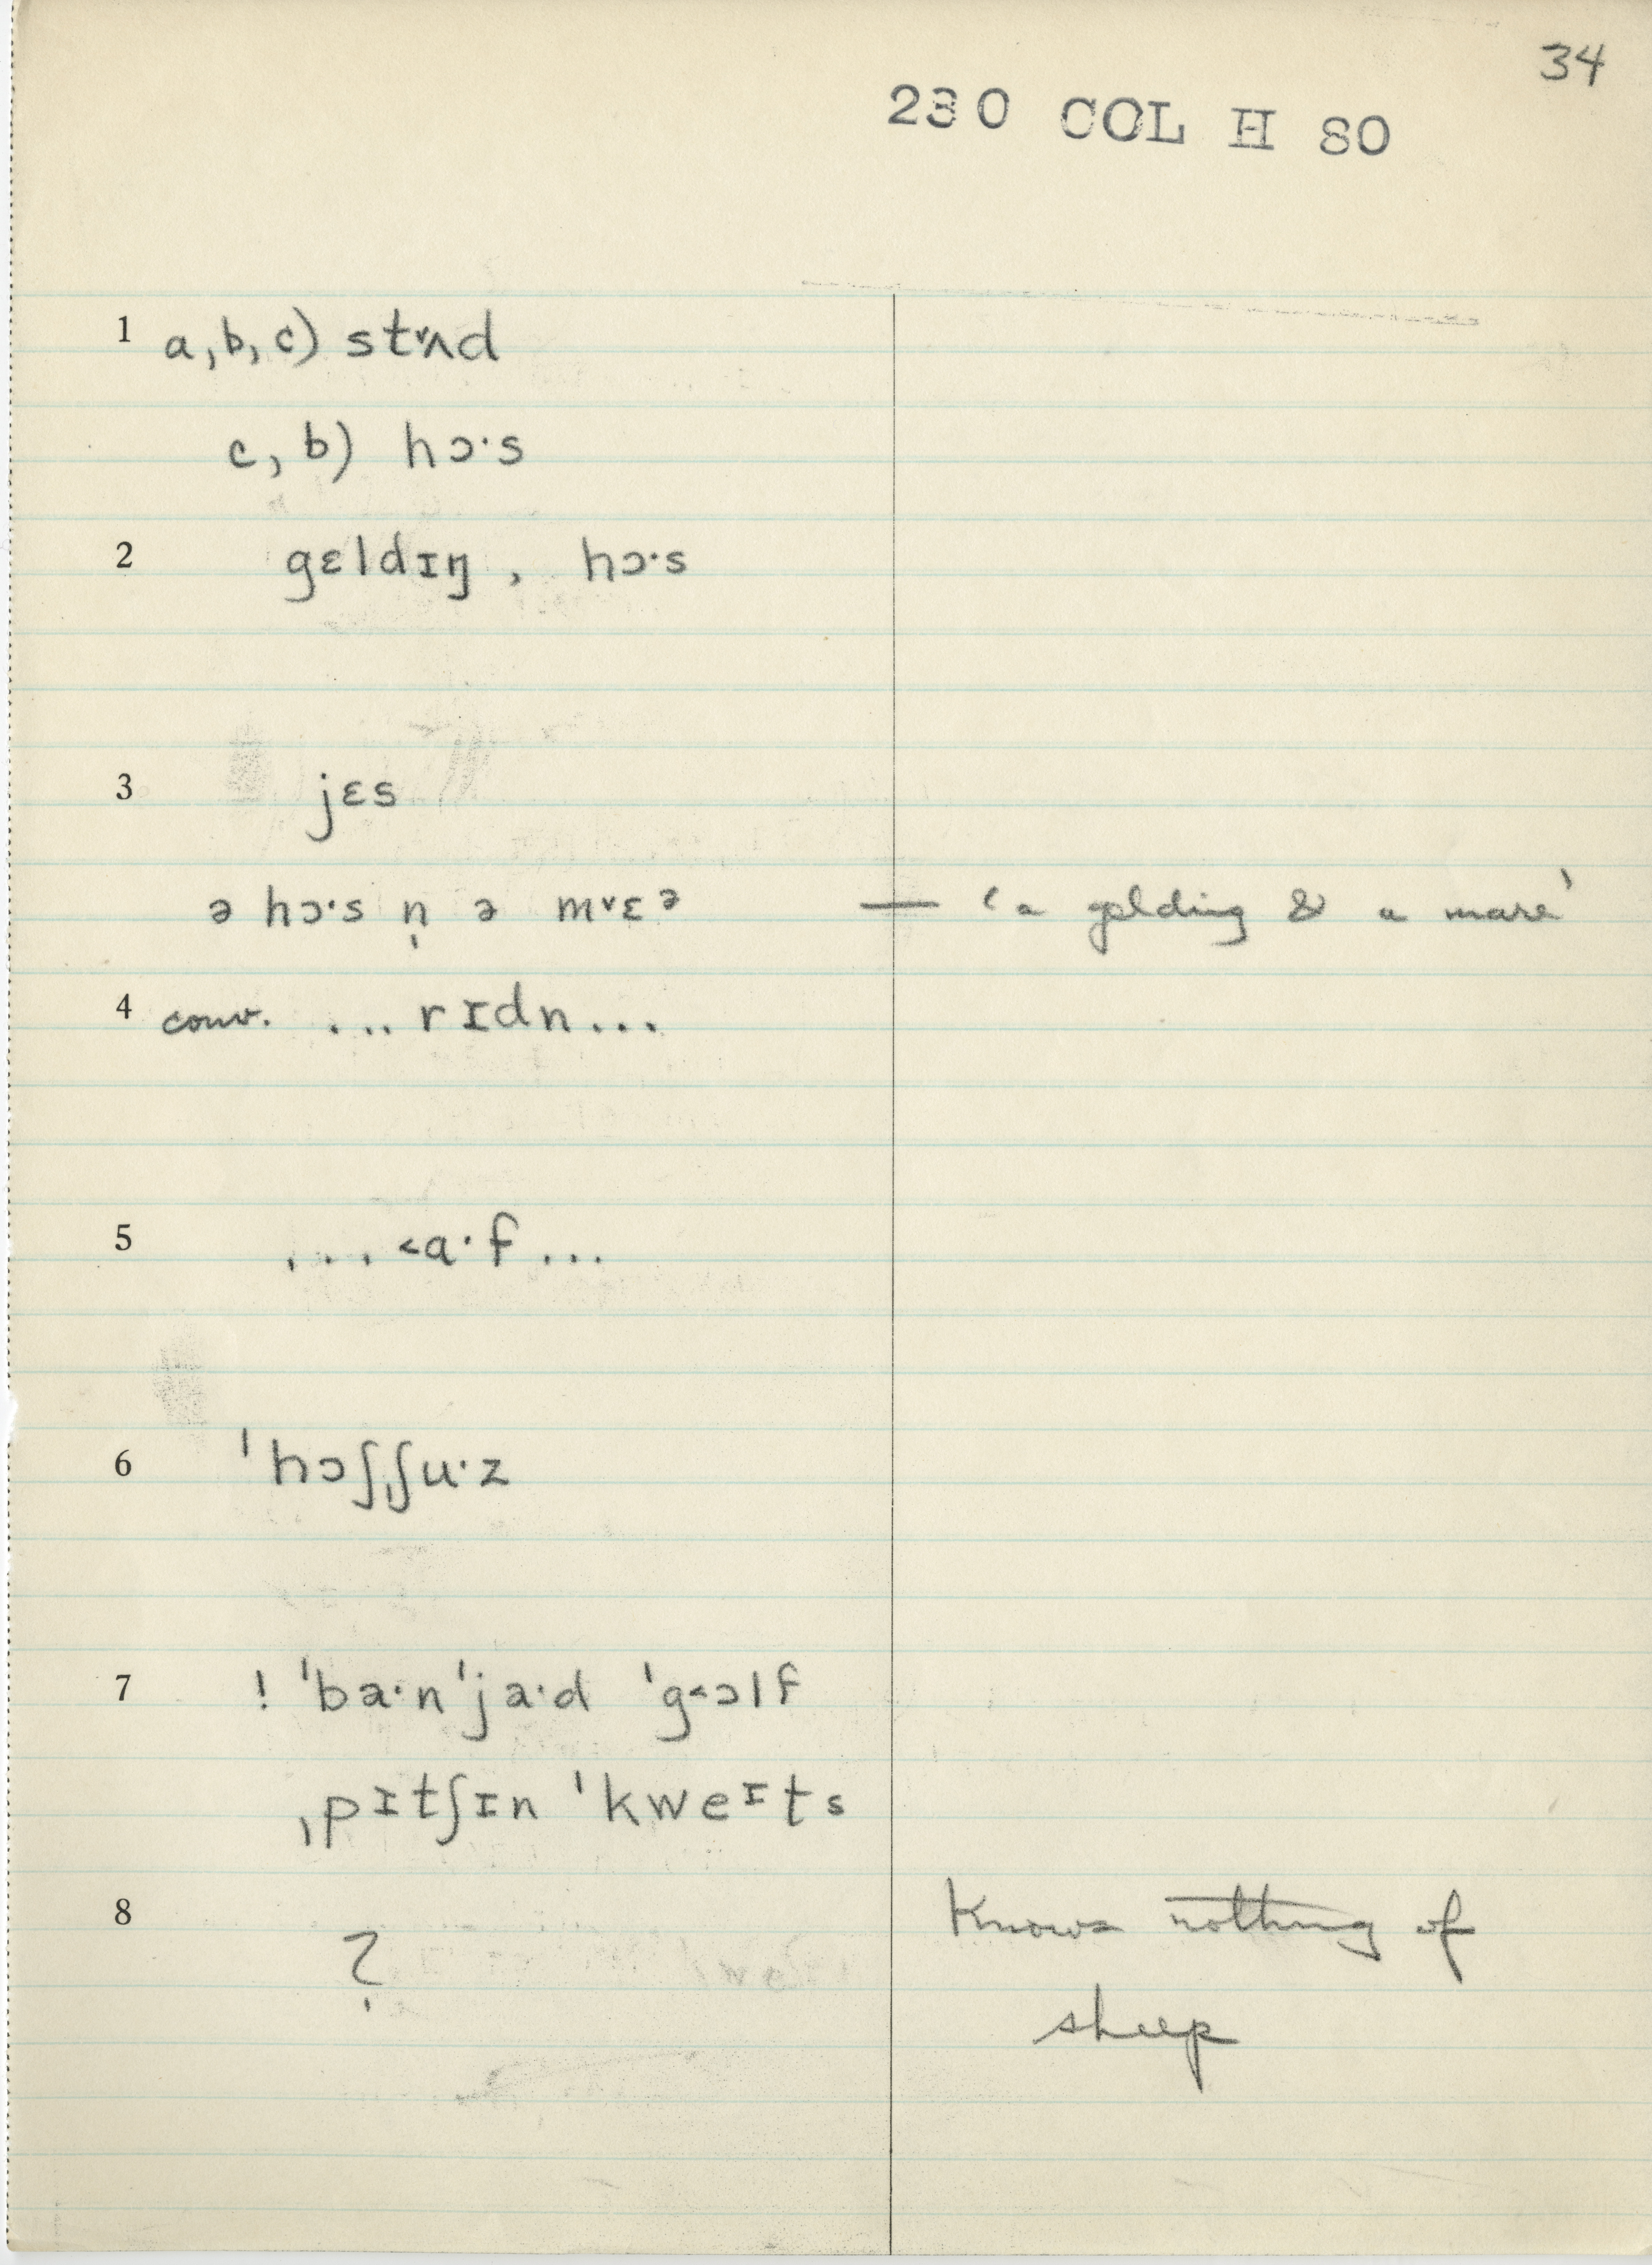 34
230 COL H 80
1 a, b, c) st˅ʌd
c, b) hɔ·s
2 gɛldɪŋ , hɔ·s
3 jɛs
ə hɔ·s n̩ ə m˅ɛᵊ — 'a gelding & a mare'
4 conv. ... rɪdn ...
5 ... ˂a·f ...
6 ˈhɔʃˌʃu·z
7 ! ˈba·nˈja·d ˈg˂ɔlf
ˌpɪtʃɪn ˈkweᶦts
8 ? Knows nothing of
sheep